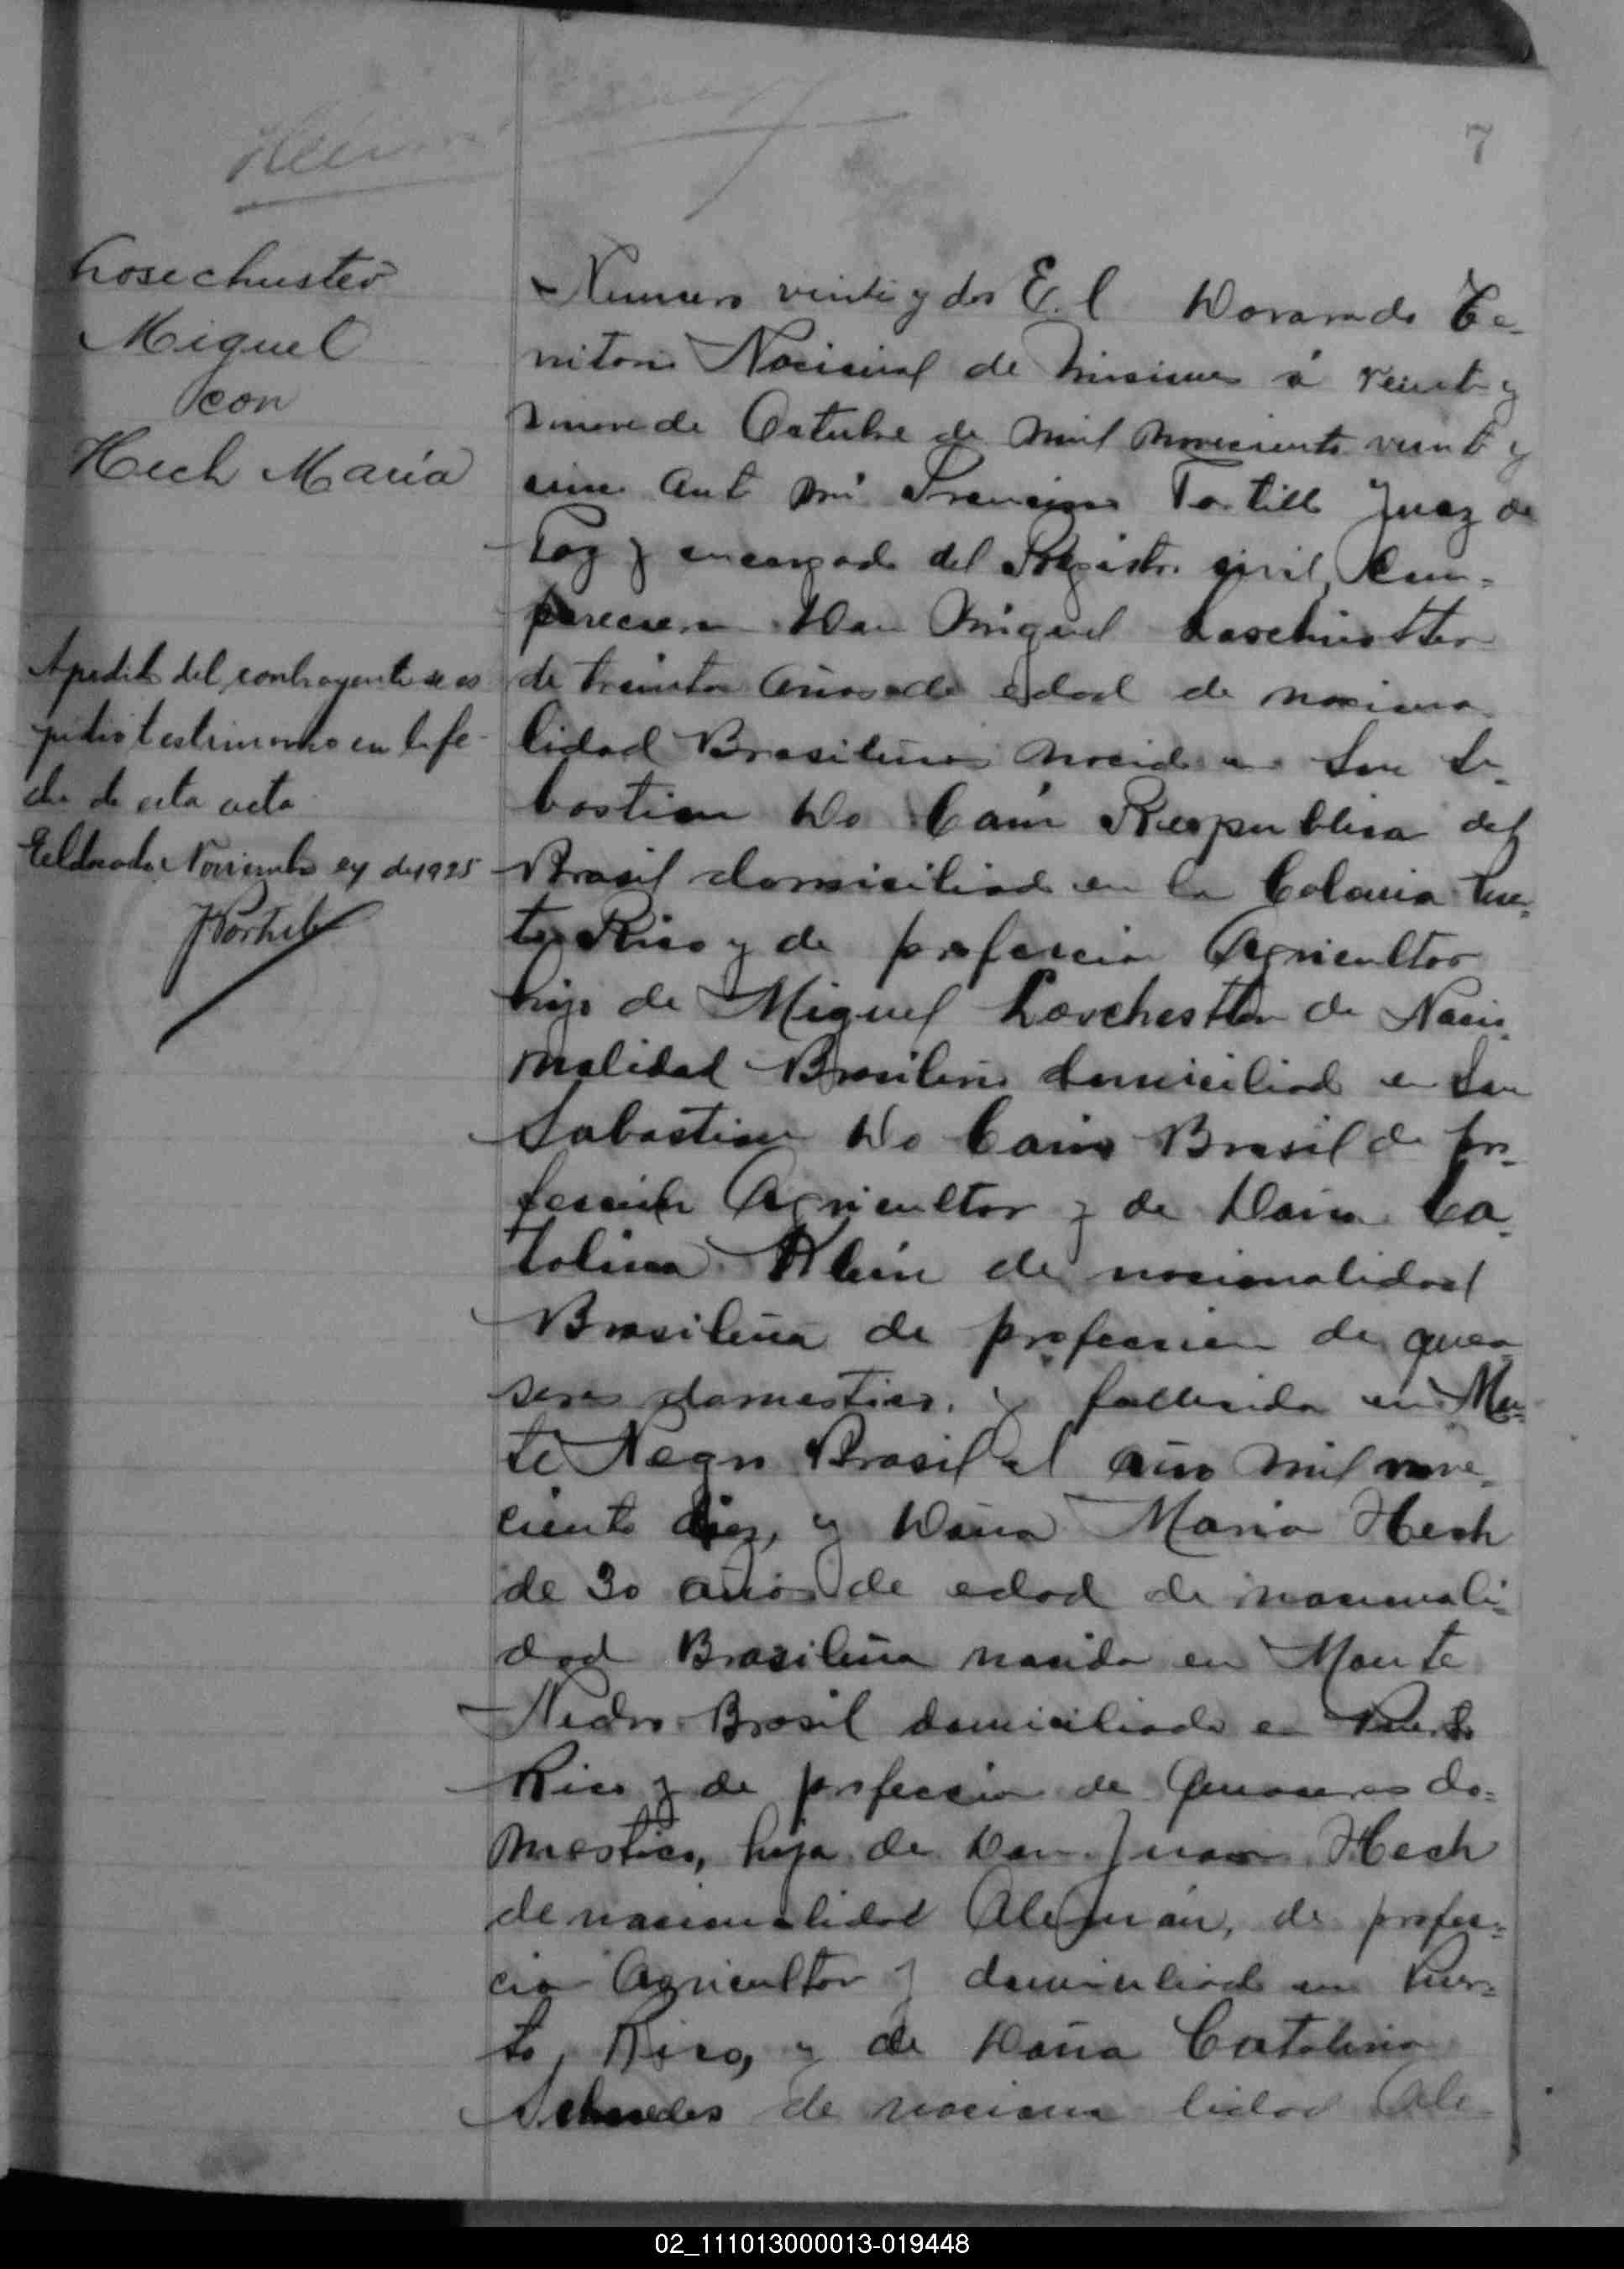 7
Losechuster
Miguel
con
Hech María
Apedido del contrayente se es
pidio testimonio en la fe-
cha de esta acta
Eeldorado Noviembre 24 de 1925
Numero veinte y dos E.l Dorarado Te-
ritorio Nacional de Misiones á veinte y
nueve de Octubre de mil novecientos veinte y
cinco ante mi Francisco Portillo Juez de
Paz y encargado del Registro civil, Com-
parecieron Don Miguel Loschustter
de treinta años de edad de naciona
lidad Brasileño nacido en San Se-
bastian Do Cain Respublica del
Brasil domiciliado en la Colonia Puer-
to Rico y de profecion Agricultor
hijo de Miguel Loschestter de Nacio-
nalidad Brasileño domiciliado en San
Sabastian Do Cain Brasil de pro-
fecion Agricultor y de Doña Ca-
talina Klein de nacionalidad
Brasileña de profecion de quea-
seres domestico. y fallecida en Mon-
te Negro Brasil el año mil nove-
ciento diez, y Doña Maria Hech
de 30 años de edad de nacionali-
dad Brazileña nacida en Monte
Nedro Brasil domiciliada en Puerto
Rico y de profecion de do-
mestico, hija de Don Juan Hech
de nacionalidad Alemán, de profe-
cion Agricultor y domiciliado en Puer-
to, Rico, y de Doña Catalina
de naciona lidad Ale-
02_111013000013-019448